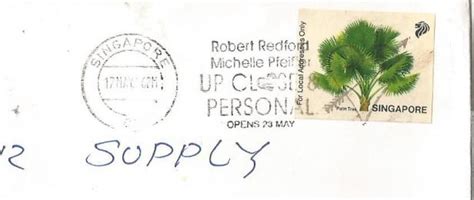 SINGAPORE
Robert Redford
Michelle Pfeiffer
UP CLOSE &
PERSONAL
OPENS 23 MAY
For Local Addresses Only
Palm Tree
SINGAPORE
SUPPLY